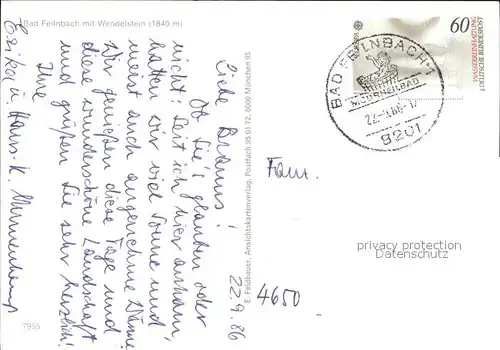 Bad Feilnbach mit Wendelstein (1840 m)
22.9.86
Liebe Brauns!
Ob Sie's glauben oder
nicht: Seit ich hier ankam,
hatten wir viel Sonne und
meist auch angenehme Wärme
Wir genießen diese Tage und
diese wunderschöne Landschaft
und grüßen Sie sehr herzlich!
Ihre
Erika u. Hans-K.
7955
E. Feldbauer, Ansichtskartenverlag, Postfach 95 01 72, 8000 München 95
BAD FEILNBACH 1
MOORHEILBAD
8201
EUROPA
60
WASSERREINHALTUNG
DEUTSCHE BUNDESPOST
Fam.
4650
privacy protection
Datenschutz